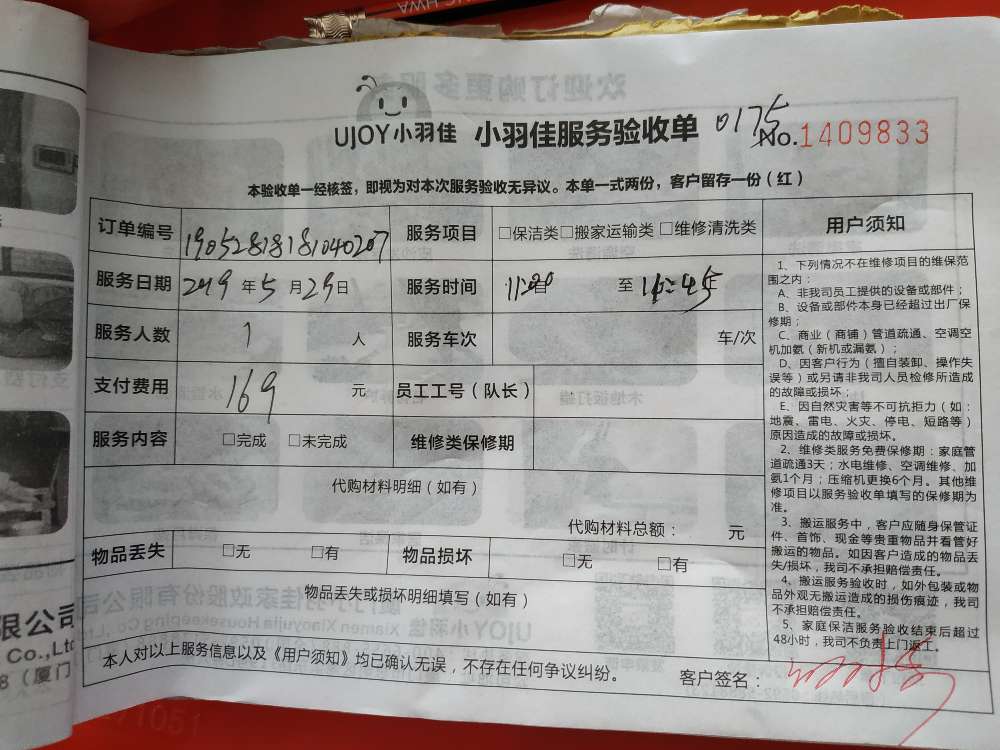 UJOY小羽佳 小羽佳服务验收单 0175 No.1409833
本验收单一经核签，即视为对本次服务验收无异议。本单一式两份，客户留存一份（红）
订单编号 19052818181040207 服务项目 □保洁类□搬家运输类 □维修清洗类
服务日期 2019年5月29日 服务时间 至 16:45
服务人数 1 人 服务车次 车/次
支付费用 169 元 员工工号（队长）
服务内容 □完成 □未完成 维修类保修期
代购材料明细（如有）
代购材料总额： 元
物品丢失 □无 □有 物品损坏 □无 □有
物品丢失或损坏明细填写（如有）
本人对以上服务信息以及《用户须知》均已确认无误，不存在任何争议纠纷。 客户签名：
用户须知
1、下列情况不在维修项目的维保范
围之内：
A、非我司员工提供的设备或部件；
B、设备或部件本身已经超过出厂保
修期；
C、商业（商铺）管道疏通、空调空
机加氨（新机或漏氨）；
D、因客户行为（擅自装卸、操作失
误等）或另请非我司人员检修所造成
的故障或损坏；
E、因自然灾害等不可抗拒力（如：
地震、雷电、火灾、停电、短路等）
原因造成的故障或损坏。
2、维修类服务免费保修期：家庭管
道疏通3天；水电维修、空调维修、加
氨1个月；压缩机更换6个月。其他维
修项目以服务验收单填写的保修期为
准。
3、搬运服务中，客户应随身保管证
件、首饰、现金等贵重物品并看管好
搬运的物品。如因客户造成的物品丢
失/损坏，我司不承担赔偿责任。
4、搬运服务验收时，如外包装或物
品外观无搬运造成的损伤痕迹，我司
不承担赔偿责任。
5、家庭保洁服务验收结束后超过
48小时，我司不负责上门返工。
限公司
Co.,Ltd
8（厦门